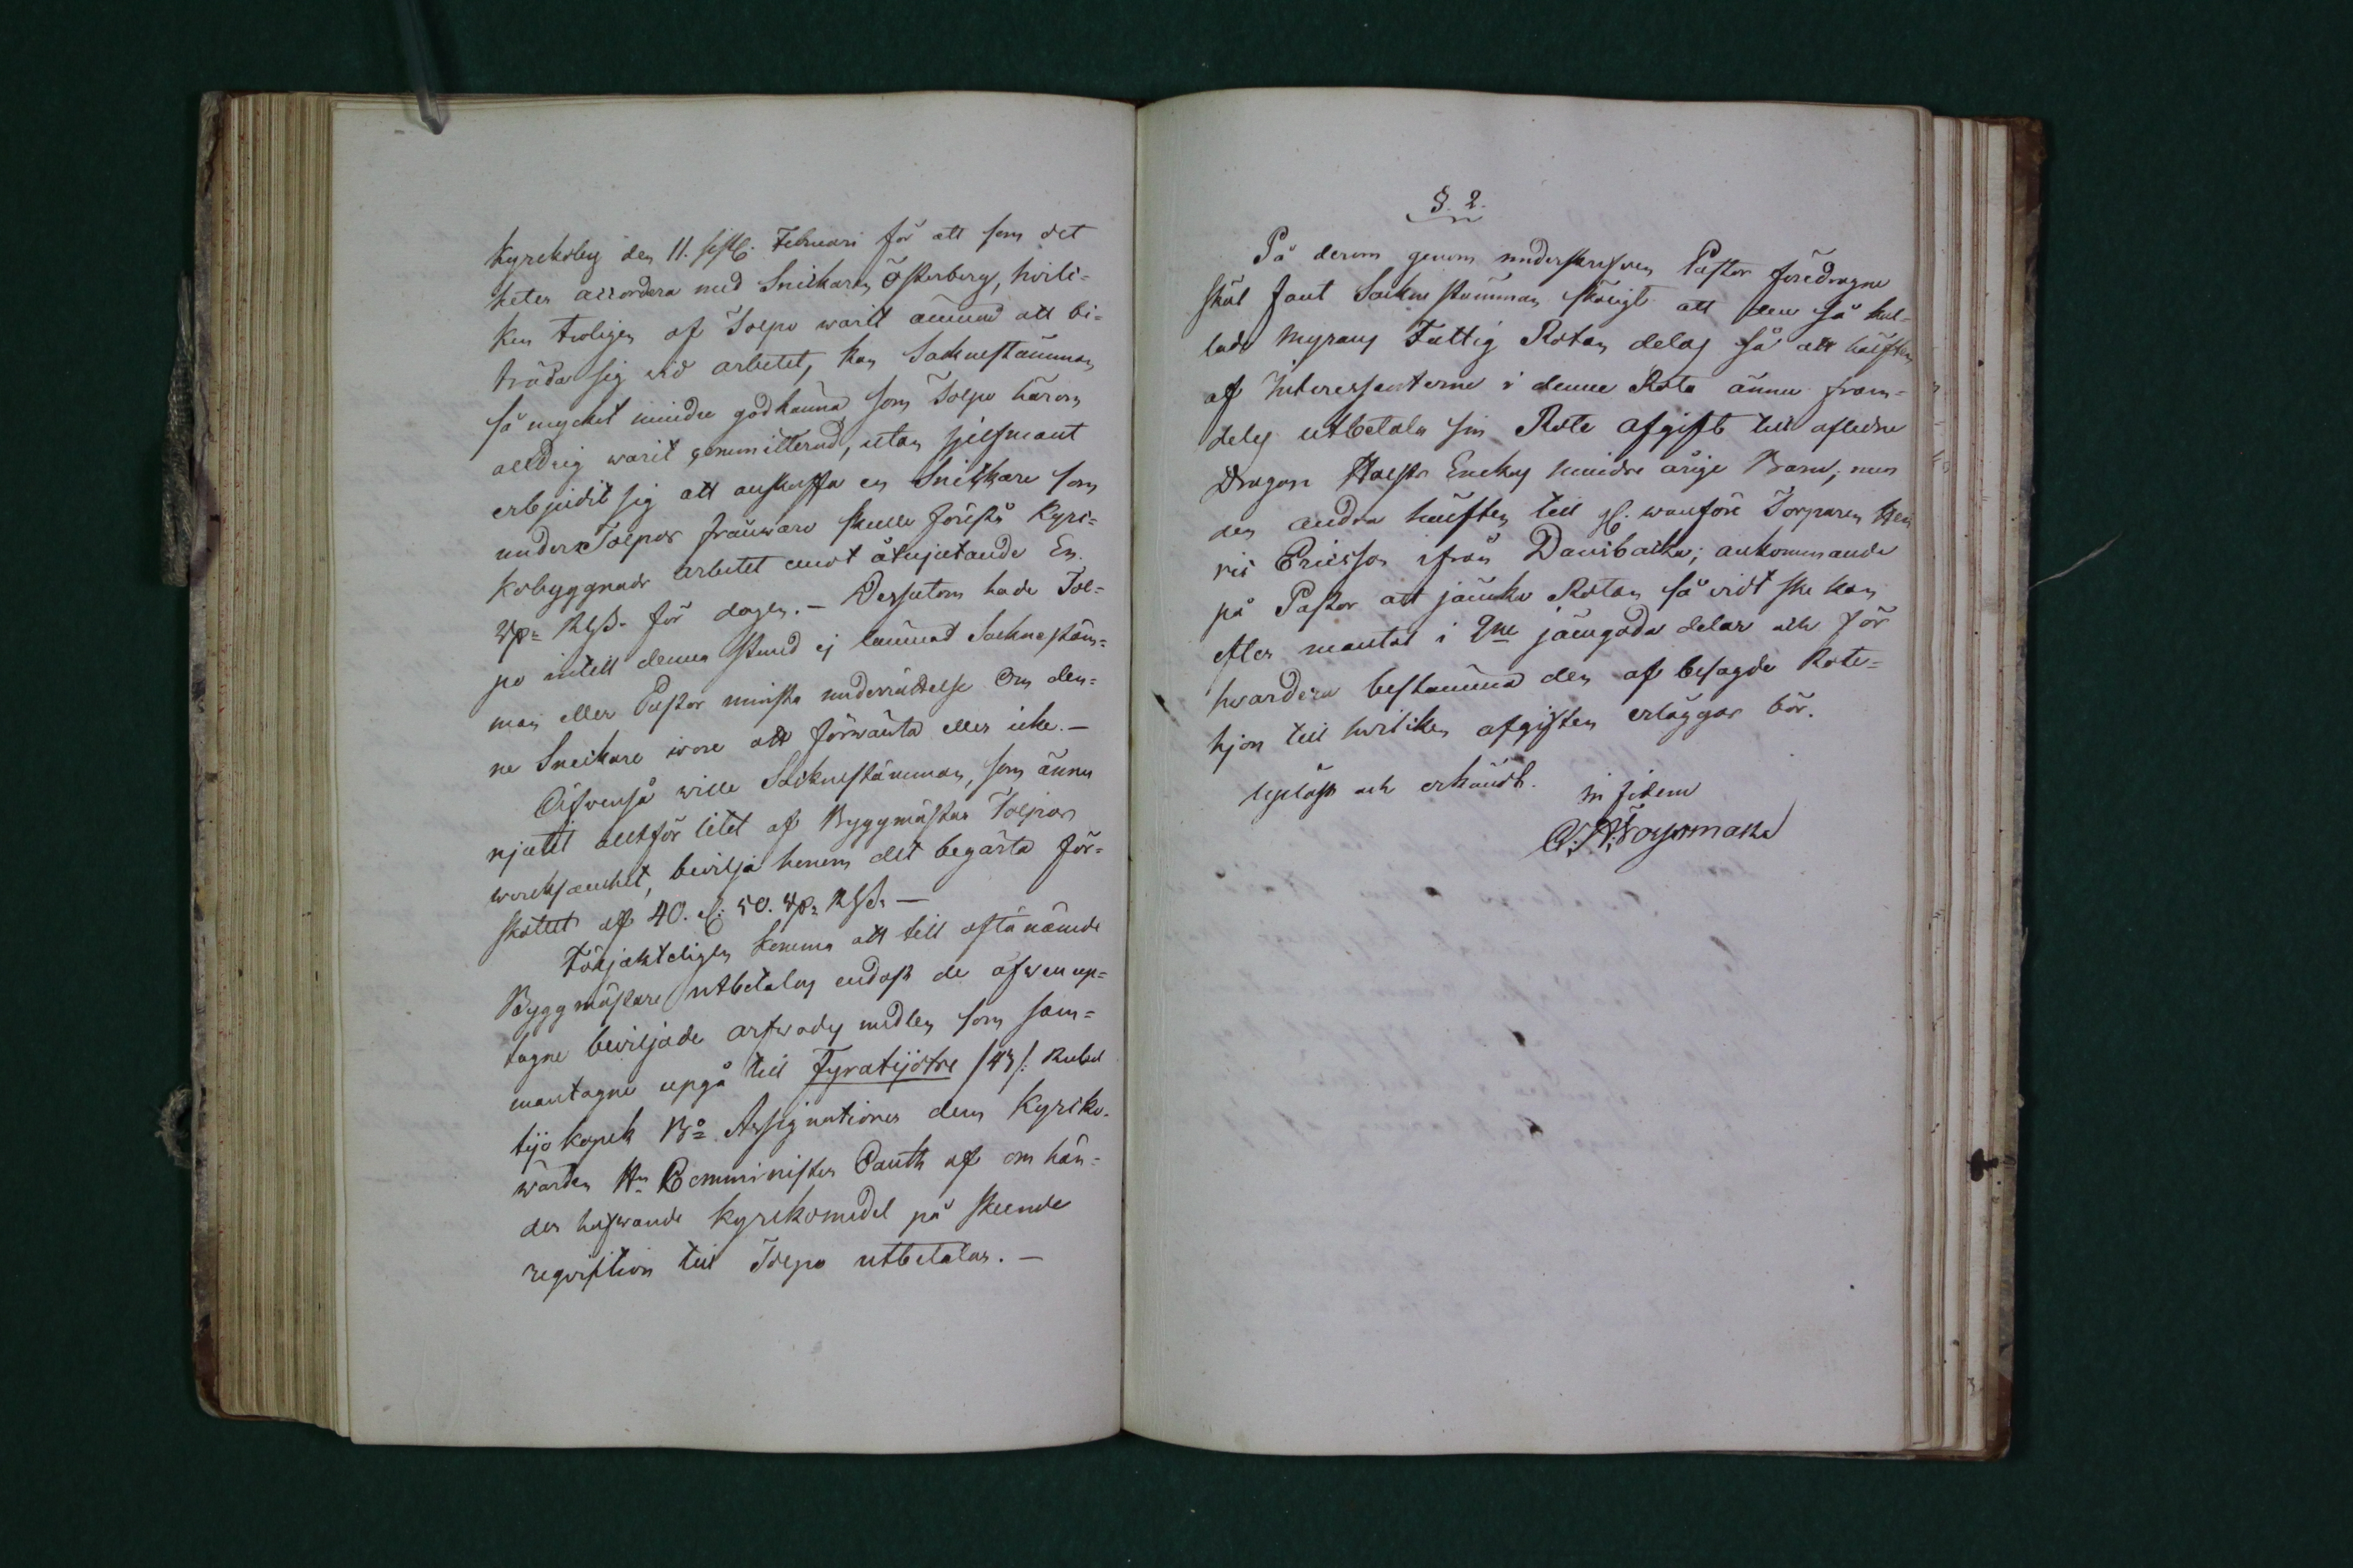 Kyrkoby den 11. Februari för att som det
heter accordera med Snickaren Österberg, hvil-
ken troligen af Tolpo warit ämnad att bi-
träda sig wid arbetet, kan Socknestämman
så mycket mindre godkänna som Tolpo härom
alldrig warit committerad, utan sjelfmant
erbjudit sig att anskaffa en Snickare som
under Tolpos frånwaro skulle förestå Kyr-
kobyggnads arbetet emot åtnjutande En
Rp. för dagen. – Dessutom hade Tol-
po intill denna stund ej lämnat Sockne stäm-
man eller Pastor minsta underrättelse om den-
ne Snickare wore att förwänta eller icke. –
Äfwenså wille Sockneståmman, som ännu
njutit alltför litet af Byggmästar Tolpos
werksamhet, bevilja honom det begärta för-
skottet af 40. 50.
Följakteligen komma att till oftanämnde
Byggmästare utbetalas endast de ofwan up-
tagne beviljade arfwodes medlen som sam-
mantagne upgå till Fyratijotre /:43:/ Rubel
tijo kopek Bco Assignationer dem Kyrko-
wärden Hr Comministern Cauth af om hän-
der hafwande Kyrkomedel på skeende
reqvisition till Tolpo utbetalar. –
§. 2.
På derom genom underskrefven Pastor föredragne
skäl fant Sockne stämman skäligt att den så kal-
lade Myrans Fattig Rotan delas så att hälften
af Interessenterne i denne Rota ännu fram-
deles utbetala sin Rote afgift till aflidne
Dragon Holsts Enckas mindre årige Barn; men
den andra hälften till wanföre Torparen Hen
ric Ericsson ifrån Dansbacka; ankommande
på Pastor att jämka Rotan så vidt ske kan
efter mantal i 2ne jämgoda delar och för
hwardera bestämma den af besagde Rote-
hjon till hwilken afgiften erläggas bör.
Upläst och erkändt. In fidem